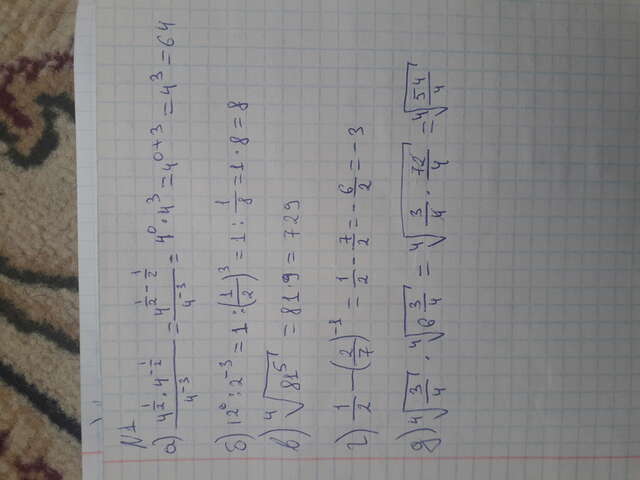 N1
а) (4^(1/2) · 4^(-1/2))/4^(-3) = 4^(1/2 - 1/2)/4^(-3) = 4⁰ · 4³ = 4^(0+3) = 4³ = 64
б) 12⁰ : 2⁻³ = 1 : (1/2)³ = 1 : 1/8 = 1 · 8 = 8
в) ⁴√(81⁵) = 81·9 = 729
г) 1/2 - (2/7)⁻¹ = 1/2 - 7/2 = - 6/2 = -3
д) ⁴√(3/4) · ⁴√(6 3/4) = ⁴√(3/4 · 72/4) = ⁴√(54/4)